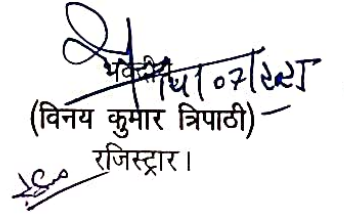 भवदीय
(विनय कुमार त्रिपाठी)
रजिस्ट्रार।